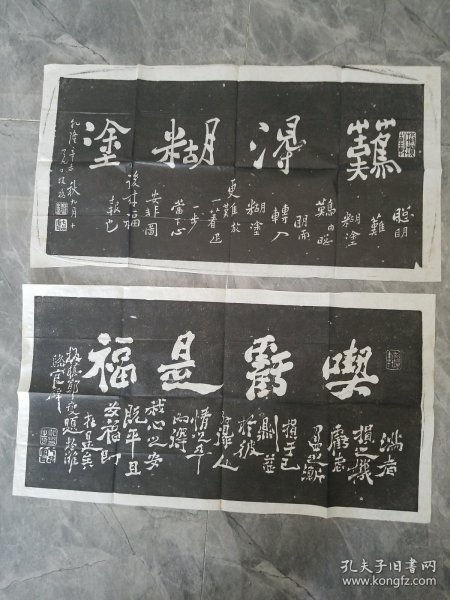 難得糊塗
聰明
難
糊塗
難由聰
明而
轉入
糊塗
更難放
一著退
一步
當下心
安非圖
後來福
報也
乾隆辛未秋九月十
喫虧是福
滿者
損之機
虧者
盈之漸
損于己
則益
于彼
外得人
情之平
內得
我心之安
既平且
安福即
在是矣
板橋鄭燮題於濰
縣官廨
孔夫子旧书网
www.kongfz.com